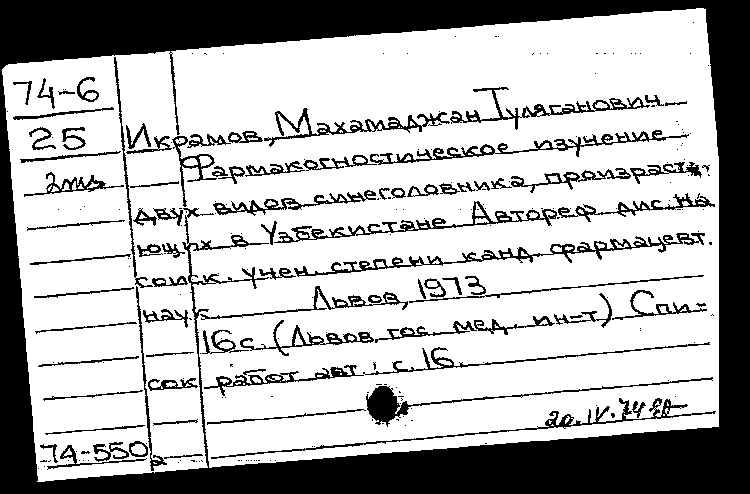 74-6
25
2 экз
Икрамов, Махамаджан Туляганович
Фармакогностическое изучение
двух видов синеголовника, произраста-
ющих в Узбекистане. Автореф. дис. на
соиск. учен. степени канд. фармацевт.
наук. Львов, 1973.
16 с. (Львов. гос. мед. ин-т) Спи=
сок работ авт.: с. 16.
20.IV.74
74-550